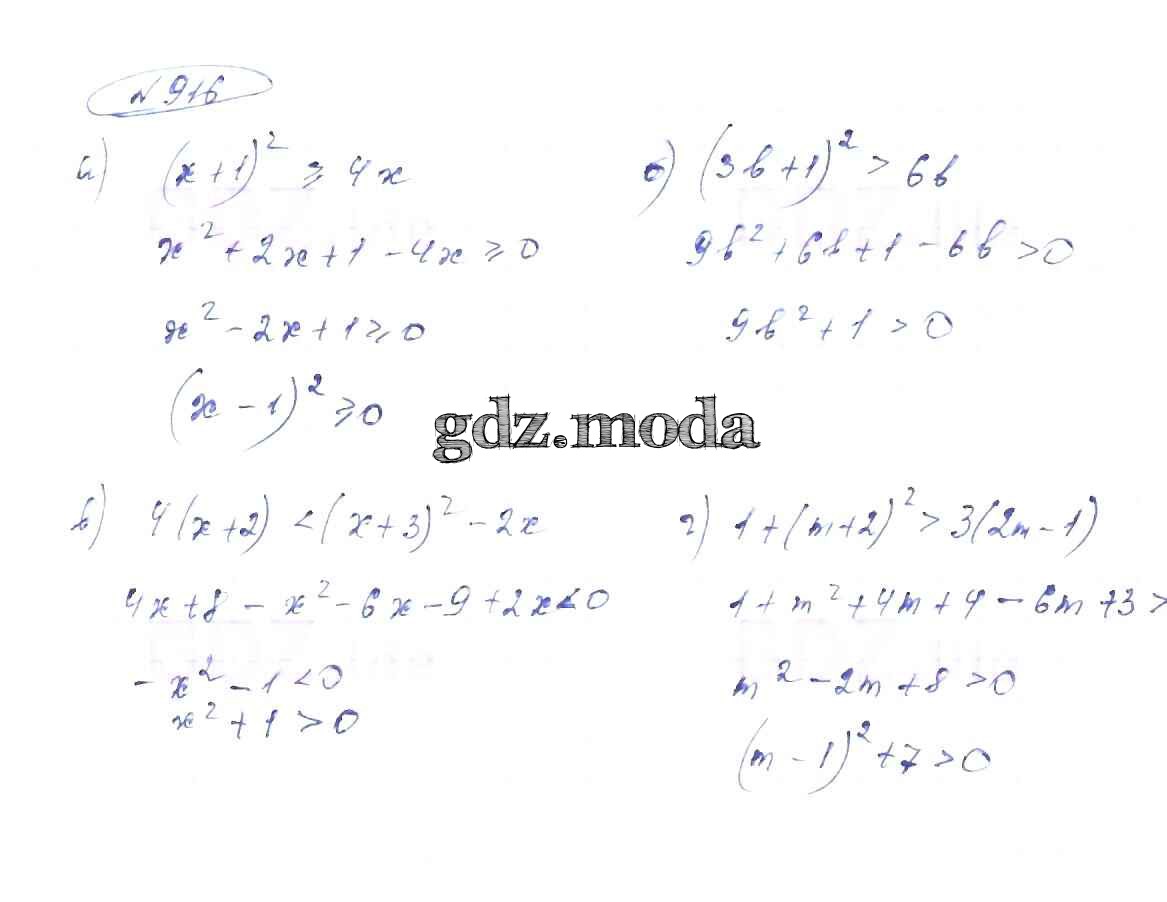 № 916
а) (x+1)² ≥ 4x
x² + 2x + 1 - 4x ≥ 0
x² - 2x + 1 ≥ 0
(x - 1)² ≥ 0
б) (3b+1)² > 6b
9b² + 6b + 1 - 6b > 0
9b² + 1 > 0
gdz.moda
в) 4(x+2) < (x+3)² - 2x
4x + 8 - x² - 6x - 9 + 2x < 0
- x² - 1 < 0
x² + 1 > 0
г) 1 + (m+2)² > 3(2m - 1)
1 + m² + 4m + 4 - 6m + 3 >
m² - 2m + 8 > 0
(m - 1)² + 7 > 0